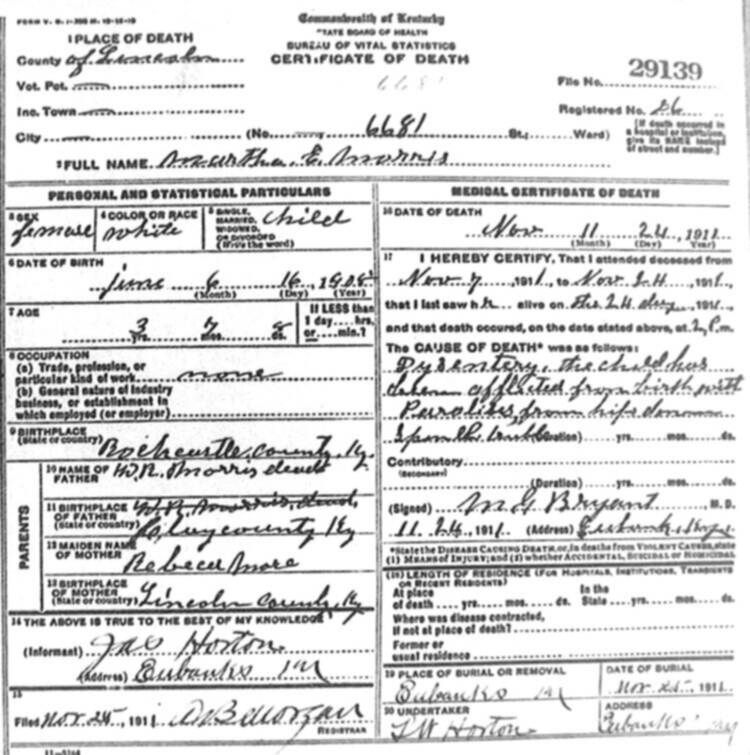 FORM V. S.
Commonwealth of Kentucky
STATE BOARD OF HEALTH
BUREAU OF VITAL STATISTICS
CERTIFICATE OF DEATH
1 PLACE OF DEATH
County of Lincoln
Vot. Pct.
Inc. Town
City
6681
File No. 29139
Registered No. 26
(No. 6681 St.; Ward)
(If death occurred in a hospital or institution, give its NAME instead of street and number.)
2 FULL NAME Martha E Morris
PERSONAL AND STATISTICAL PARTICULARS
3 SEX
female
4 COLOR OR RACE
white
5 SINGLE, MARRIED, WIDOWED, OR DIVORCED (Write the word)
child
6 DATE OF BIRTH
june 6 16 1908
(Month) (Day) (Year)
7 AGE
3 yrs. 7 mos. 8 ds.
If LESS than 1 day....hrs. or....min.?
8 OCCUPATION
(a) Trade, profession, or particular kind of work none
(b) General nature of industry business, or establishment in which employed (or employer)
9 BIRTHPLACE
(State or country) Rockcastle county, Ky.
PARENTS
10 NAME OF FATHER W.R. Morris dead
11 BIRTHPLACE OF FATHER (State or country) W.R. Morris, dead,
Clay county Ky
12 MAIDEN NAME OF MOTHER
Rebeca More
13 BIRTHPLACE OF MOTHER (State or country) Lincoln county, Ky
14 THE ABOVE IS TRUE TO THE BEST OF MY KNOWLEDGE
(Informant) Jas Horton
(Address) Eubanks Ky
15
Filed Nov. 25, 1911
REGISTRAR
MEDICAL CERTIFICATE OF DEATH
16 DATE OF DEATH
Nov 11 24, 1911
(Month) (Day) (Year)
17 I HEREBY CERTIFY, That I attended deceased from
Nov 7, 1911, to Nov 24, 1911,
that I last saw her alive on the 24 day, 1911,
and that death occured, on the date stated above, at 2 P.m.
The CAUSE OF DEATH* was as follows:
Dysentery, the child has
been afflicted from birth with
Paralites from hips down
(Duration) yrs. mos. ds.
Contributory
(SECONDARY)
(Duration) yrs. mos. ds.
(Signed) M G Bryant M. D.
11. 24, 1911 (Address) Eubank, Ky
*State the DISEASE CAUSING DEATH, or, in deaths from VIOLENT CAUSES, state (1) MEANS OF INJURY; and (2) whether ACCIDENTAL, SUICIDAL or HOMICIDAL
18 LENGTH OF RESIDENCE (FOR HOSPITALS, INSTITUTIONS, TRANSIENTS OR RECENT RESIDENTS)
At place of death yrs. mos. ds. In the State yrs. mos. ds.
Where was disease contracted,
If not at place of death?
Former or usual residence
19 PLACE OF BURIAL OR REMOVAL
Eubanks Ky
DATE OF BURIAL
Nov. 25, 1911
20 UNDERTAKER
Horton
ADDRESS
Eubanks Ky